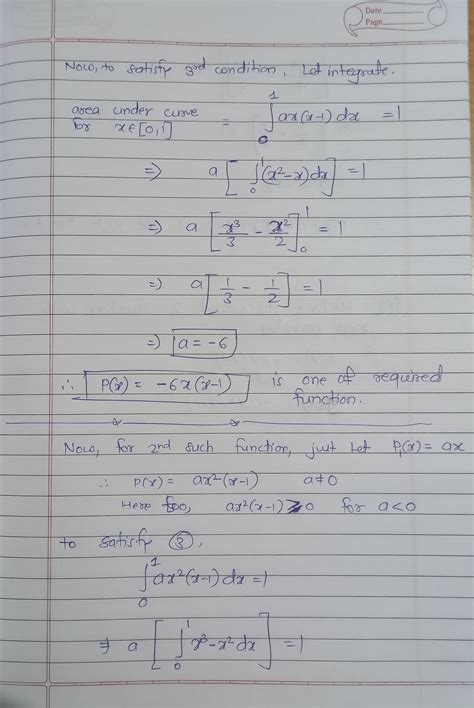 Date
Page
Now, to satisfy 3rd condition, Let integrate.
area under curve for x∈[0,1] = ∫₀¹ ax(x-1) dx = 1
⇒ a[∫₀¹ (x²-x)dx] = 1
⇒ a[x³/3 - x²/2]₀¹ = 1
⇒ a[1/3 - 1/2] = 1
⇒ a = -6
∴ P(x) = -6x(x-1) is one of required function.
Now, for 2nd such function, just Let P₁(x) = ax
∴ P(x) = ax²(x-1) a≠0
Here too, ax²(x-1) ≥ 0 for a<0
to satisfy ③,
∫₀¹ ax²(x-1) dx = 1
⇒ a[∫₀¹ x³-x² dx] = 1